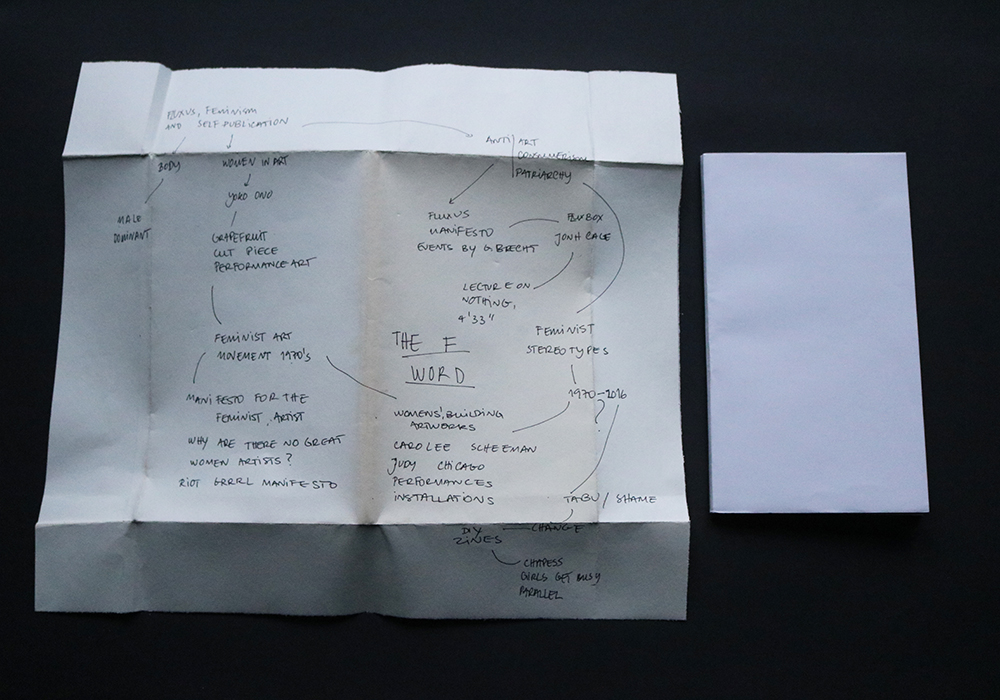 FLUXUS, FEMINISM
AND SELF PUBLICATION
BODY
MALE
DOMINANT
WOMEN IN ART
YOKO ONO
GRAPEFRUIT
CUT PIECE
PERFORMANCE ART
FEMINIST ART
MOVEMENT 1970's
MANIFESTO FOR THE
FEMINIST ARTIST
WHY ARE THERE NO GREAT
WOMEN ARTISTS?
RIOT GRRRL MANIFESTO
ANTI
ART
CONSUMERISM
PATRIARCHY
FLUXUS
MANIFESTO
EVENTS BY G. BRECHT
FLUXBOX
JONH CAGE
LECTURE ON
NOTHING,
4'33"
THE F
WORD
WOMENS' BUILDING
ARTWORKS
CAROLEE SCHEEMAN
JUDY CHICAGO
PERFORMANCES
INSTALLATIONS
FEMINIST
STEREOTYPES
1970-2016
?
TABU / SHAME
CHANGE
DIY
ZINES
CHAPESS
GIRLS GET BUSY
PARALLEL